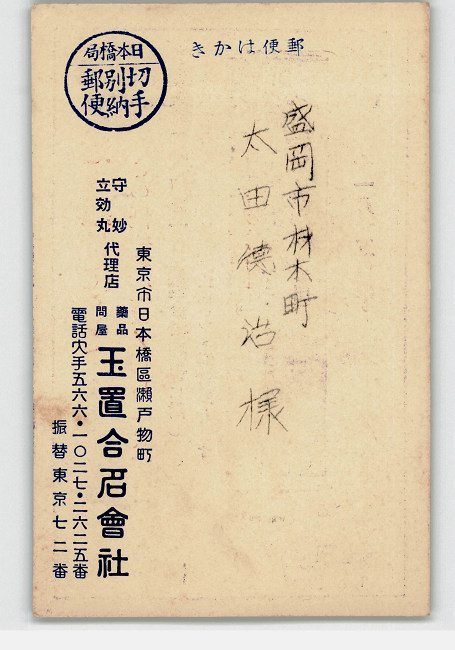 郵便はかき
日本橋局
切手
別納
郵便
盛岡市材木町
太田德治様
東京市日本橋區瀨戸物町
守妙
立効丸
代理店
藥品
問屋
玉置合名會社
電話大手五六六・一〇二七・二六二五番
振替東京七二番